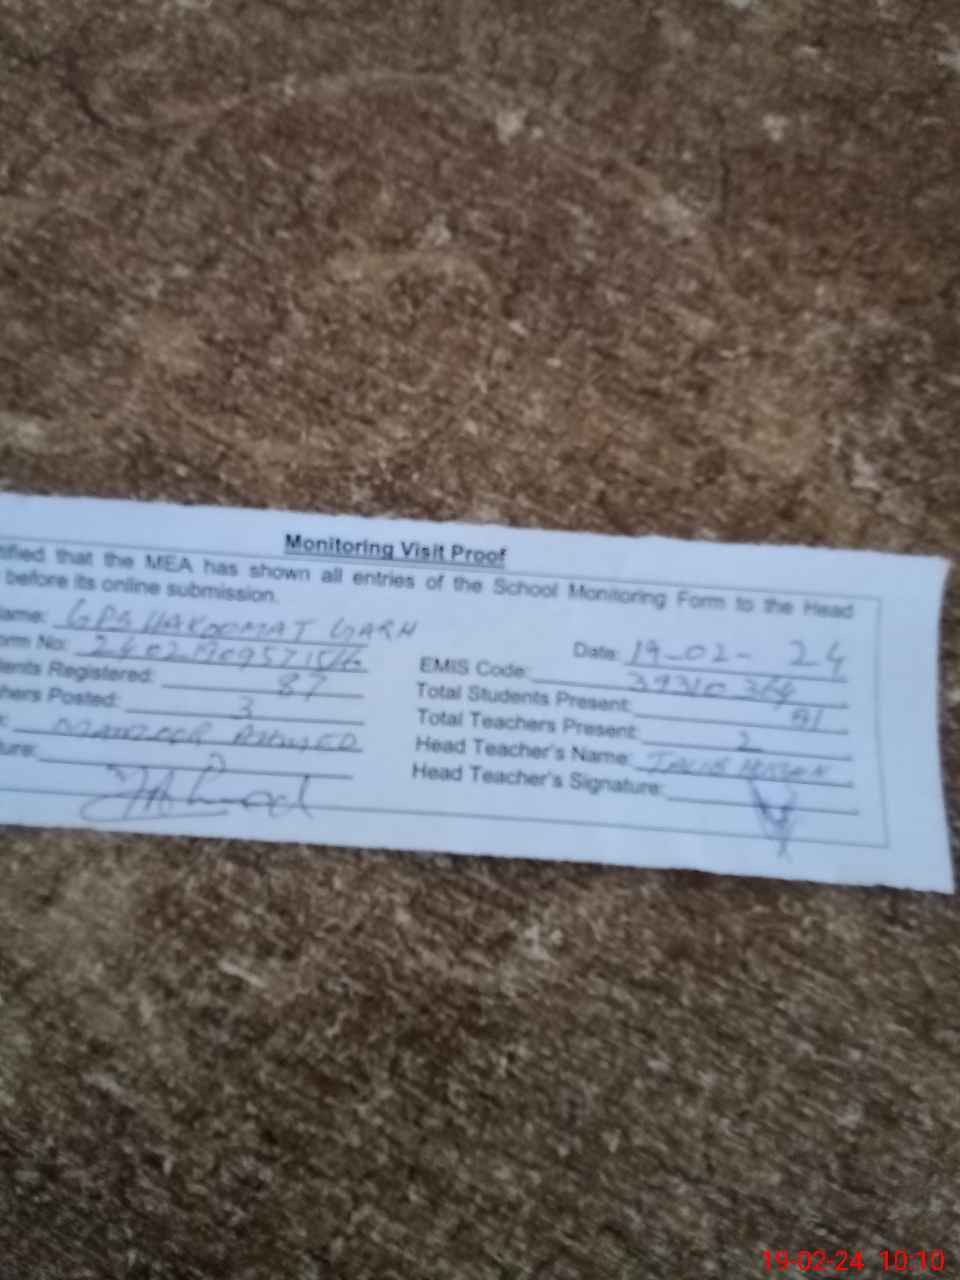 Monitoring Visit Proof
tified that the MEA has shown all entries of the School Monitoring Form to the Head
before its online submission.
ame: GPS HAKOOMAT GARH
Date: 19-02-24
orm No:
EMIS Code:
ents Registered: 87
Total Students Present:
hers Posted: 3
Total Teachers Present: 2
MANZOOR AHMED
Head Teacher's Name:
ture:
Head Teacher's Signature:
19-02-24 10:10